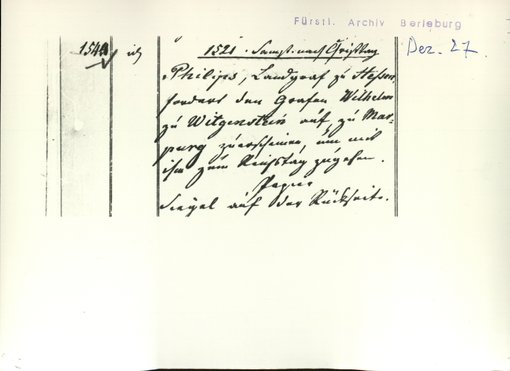 Fürstl. Archiv Berleburg
Dez. 27.
1521. Samst. nach Christtag
Philips, Landgraf zu Hessen,
fordert den Grafen Wilhelm
zu Witgenstein auf, zu Mar-
purg zu erscheinen, um mit
ihm zum Reichstag zu gehen.
Papier
Siegel auf der Rückseite.